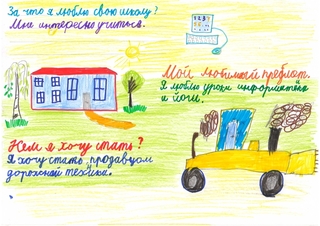 За что я люблю свою школу?
Мне интересно учиться.
Мой любимый предмет.
Я люблю уроки информатики
и йоги.
Кем я хочу стать?
Я хочу стать продавцом
дорожной техники.